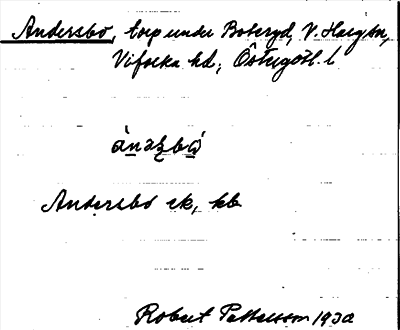 Andersbo, torp under Boteryd, V. Hargsn,
Vifolka hd, Östergötl. l
Andersbo ek, kb
Robert Pettersson 1930